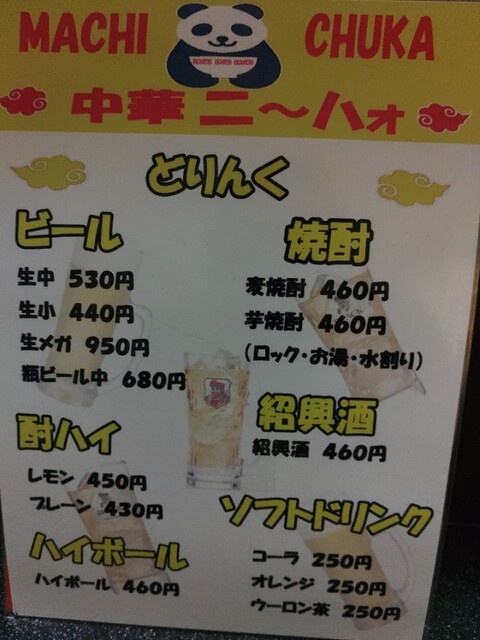 MACHI CHUKA
中華 ニ〜ハオ
どりんく
ビール
生中 530円
生小 440円
生メガ 950円
瓶ビール中 680円
酎ハイ
レモン 450円
プレーン 430円
ハイボール
ハイボール 460円
焼酎
麦焼酎 460円
芋焼酎 460円
(ロック・お湯・水割り)
紹興酒
紹興酒 460円
ソフトドリンク
コーラ 250円
オレンジ 250円
ウーロン茶 250円